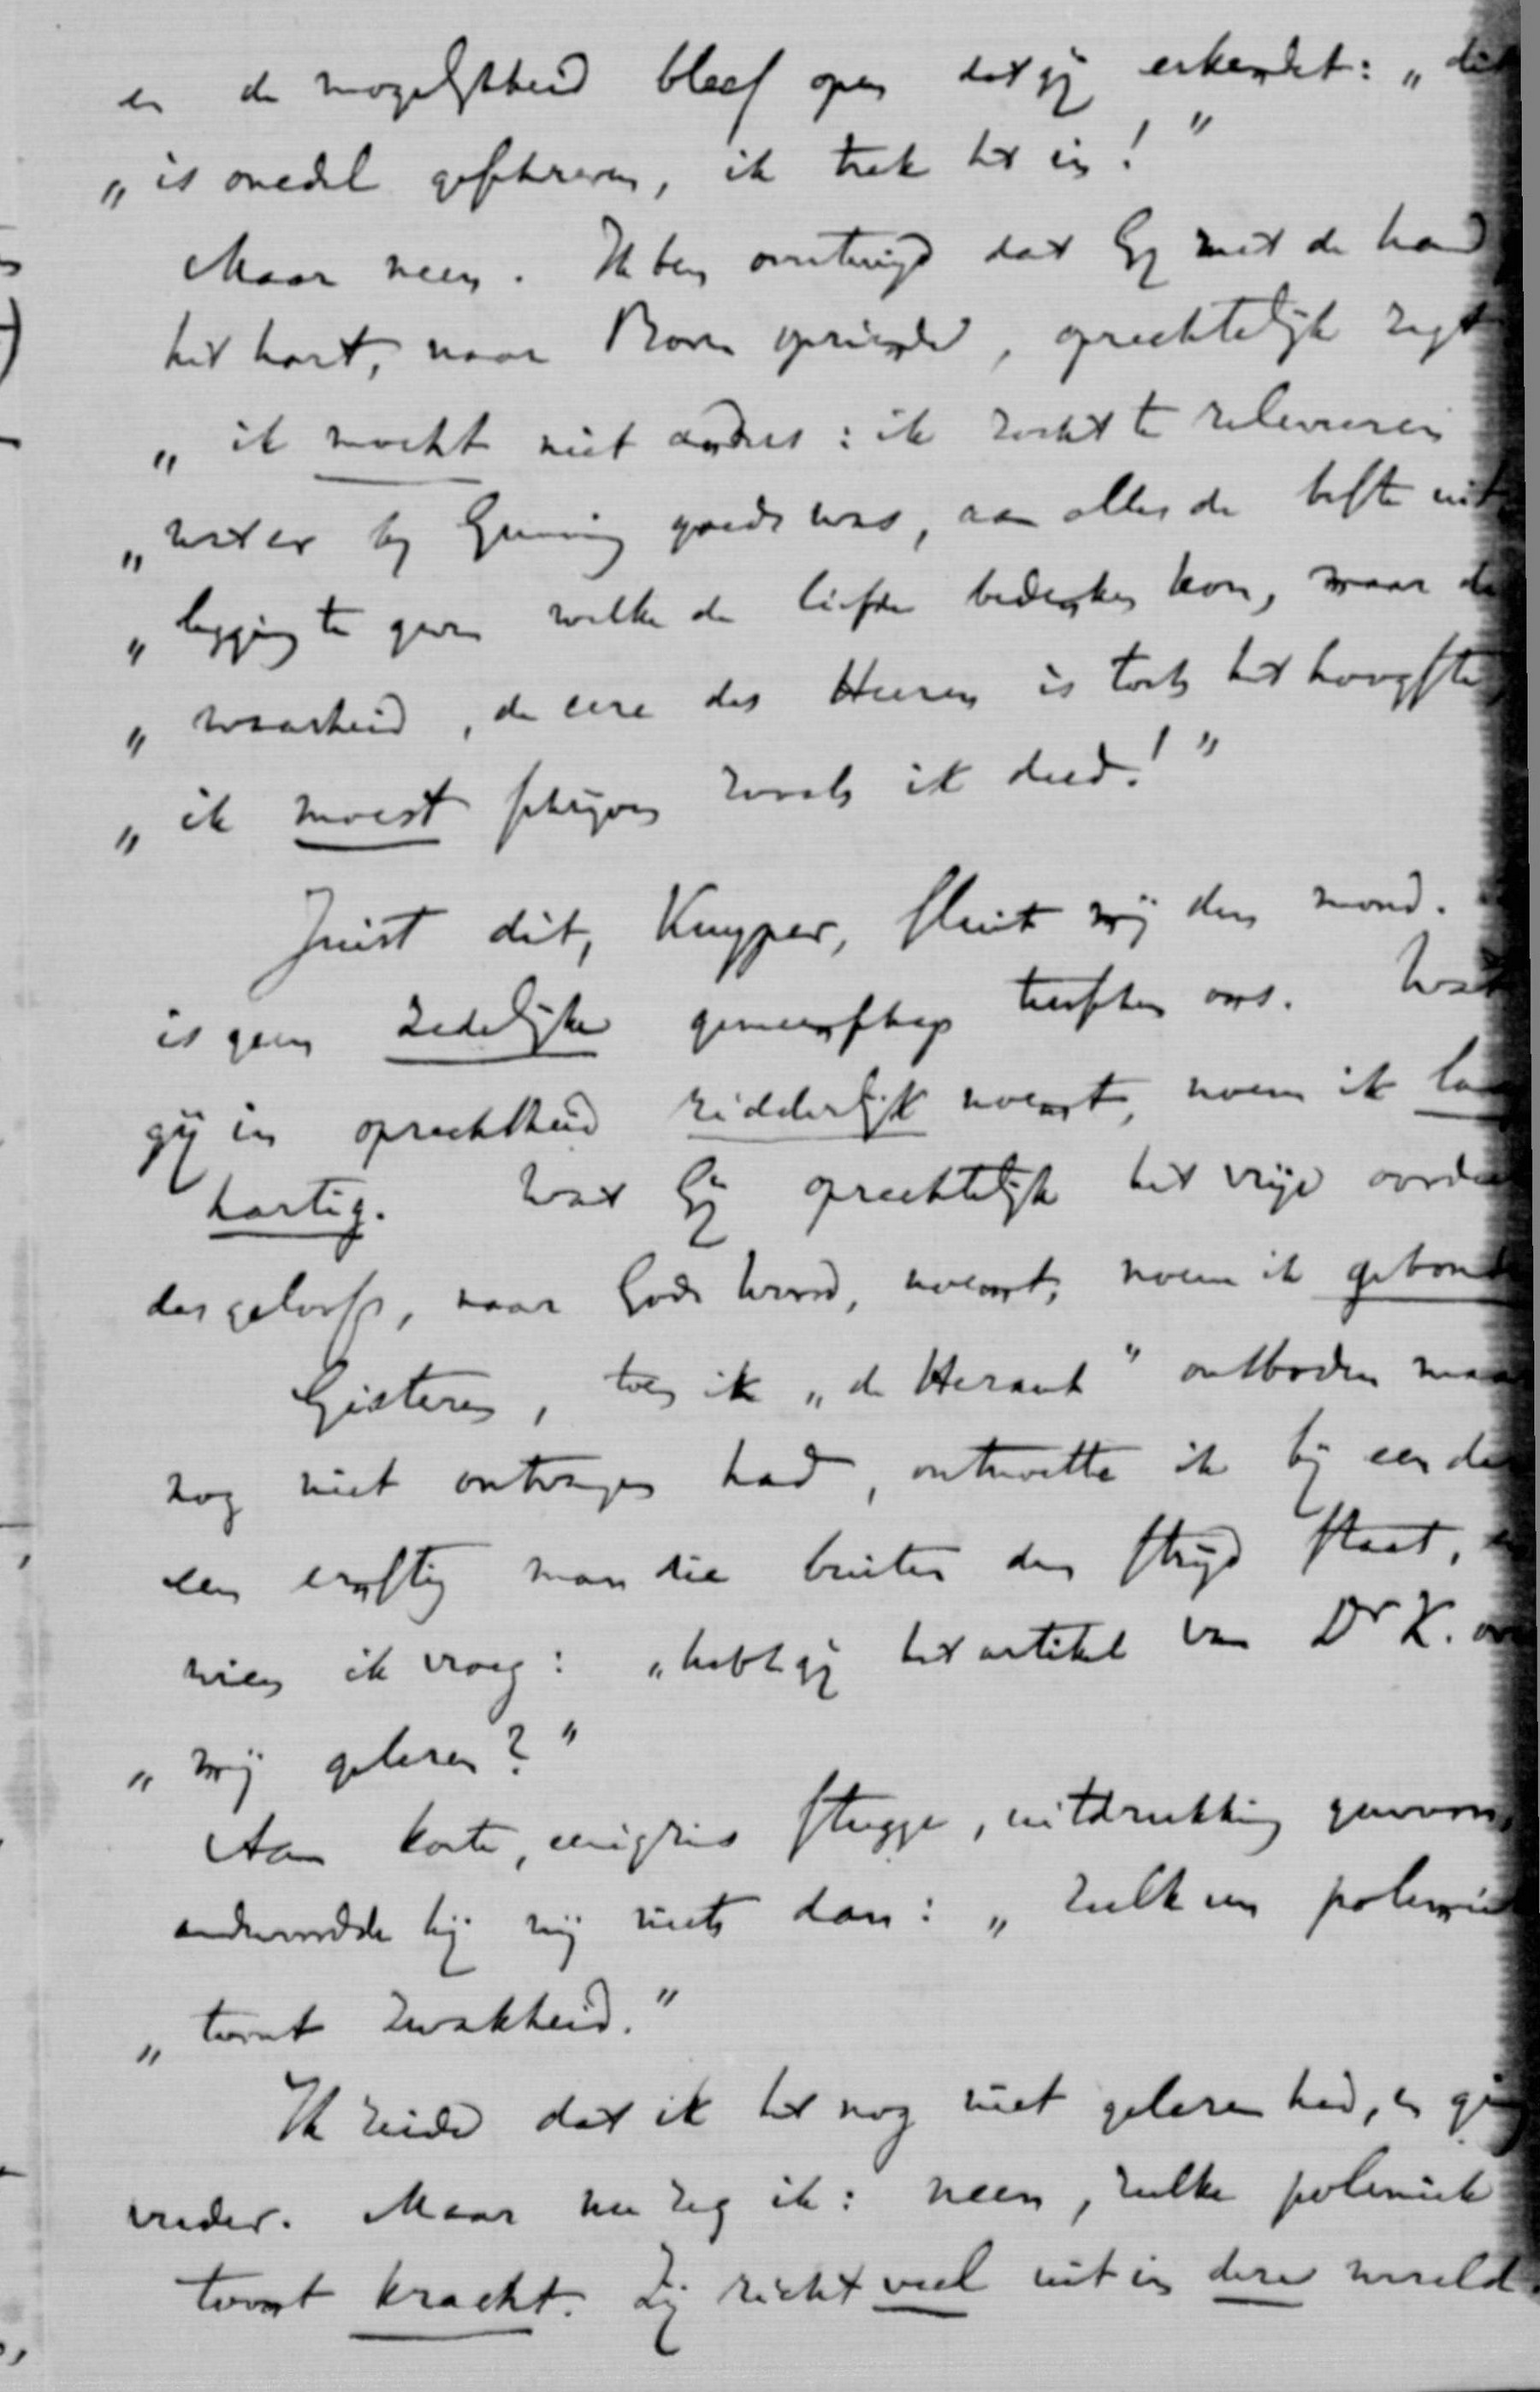 en de mogelijkheid bleef open dat gij erkendet: „dit
„is onedel geschreven, ik trek het in!"
Maar neen. Ik ben overtuigd dat Gij met de hand
het hart, naar Boven opziende, oprechtelijk zegt
„ik mocht niet anders: ik zocht te releveeren
„wat er bij Gunning goeds was, aan alles de beste uit
„legging te geven welke de liefde bedenken kon, maar de
„waarheid, de eere des Heeren is toch het hoogste,
„ik moest schrijven zooals ik deed!"
Juist dit, Kuyper, sluit mij den mond.
is geen zedelijke gemeenschap tusschen ons. Wat
gij in oprechtheid ridderlijk noemt, noem ik laag
hartig. Wat Gij oprechtelijk het vrije oordeel
des geloofs, naar Gods Woord, noemt, noem ik gebond
Gisteren, toen ik „de Heraut" ontboden maar
nog niet ontvangen had, ontmoette ik bij een
een ernstig man die buiten den strijd staat,
wien ik vroeg: „hebt gij het artikel van Dr K. over
„mij gelezen?"
Aan korte, eenigzins stugge, uitdrukking gewoon,
antwoordde hij mij niets dan: „zulk een polemiek
„toont zwakheid."
Ik zeide dat ik het nog niet gelezen had, en ging
verder. Maar nu zeg ik: neen, zulke polemiek
toont kracht. Zij richt veel uit in deze wereld